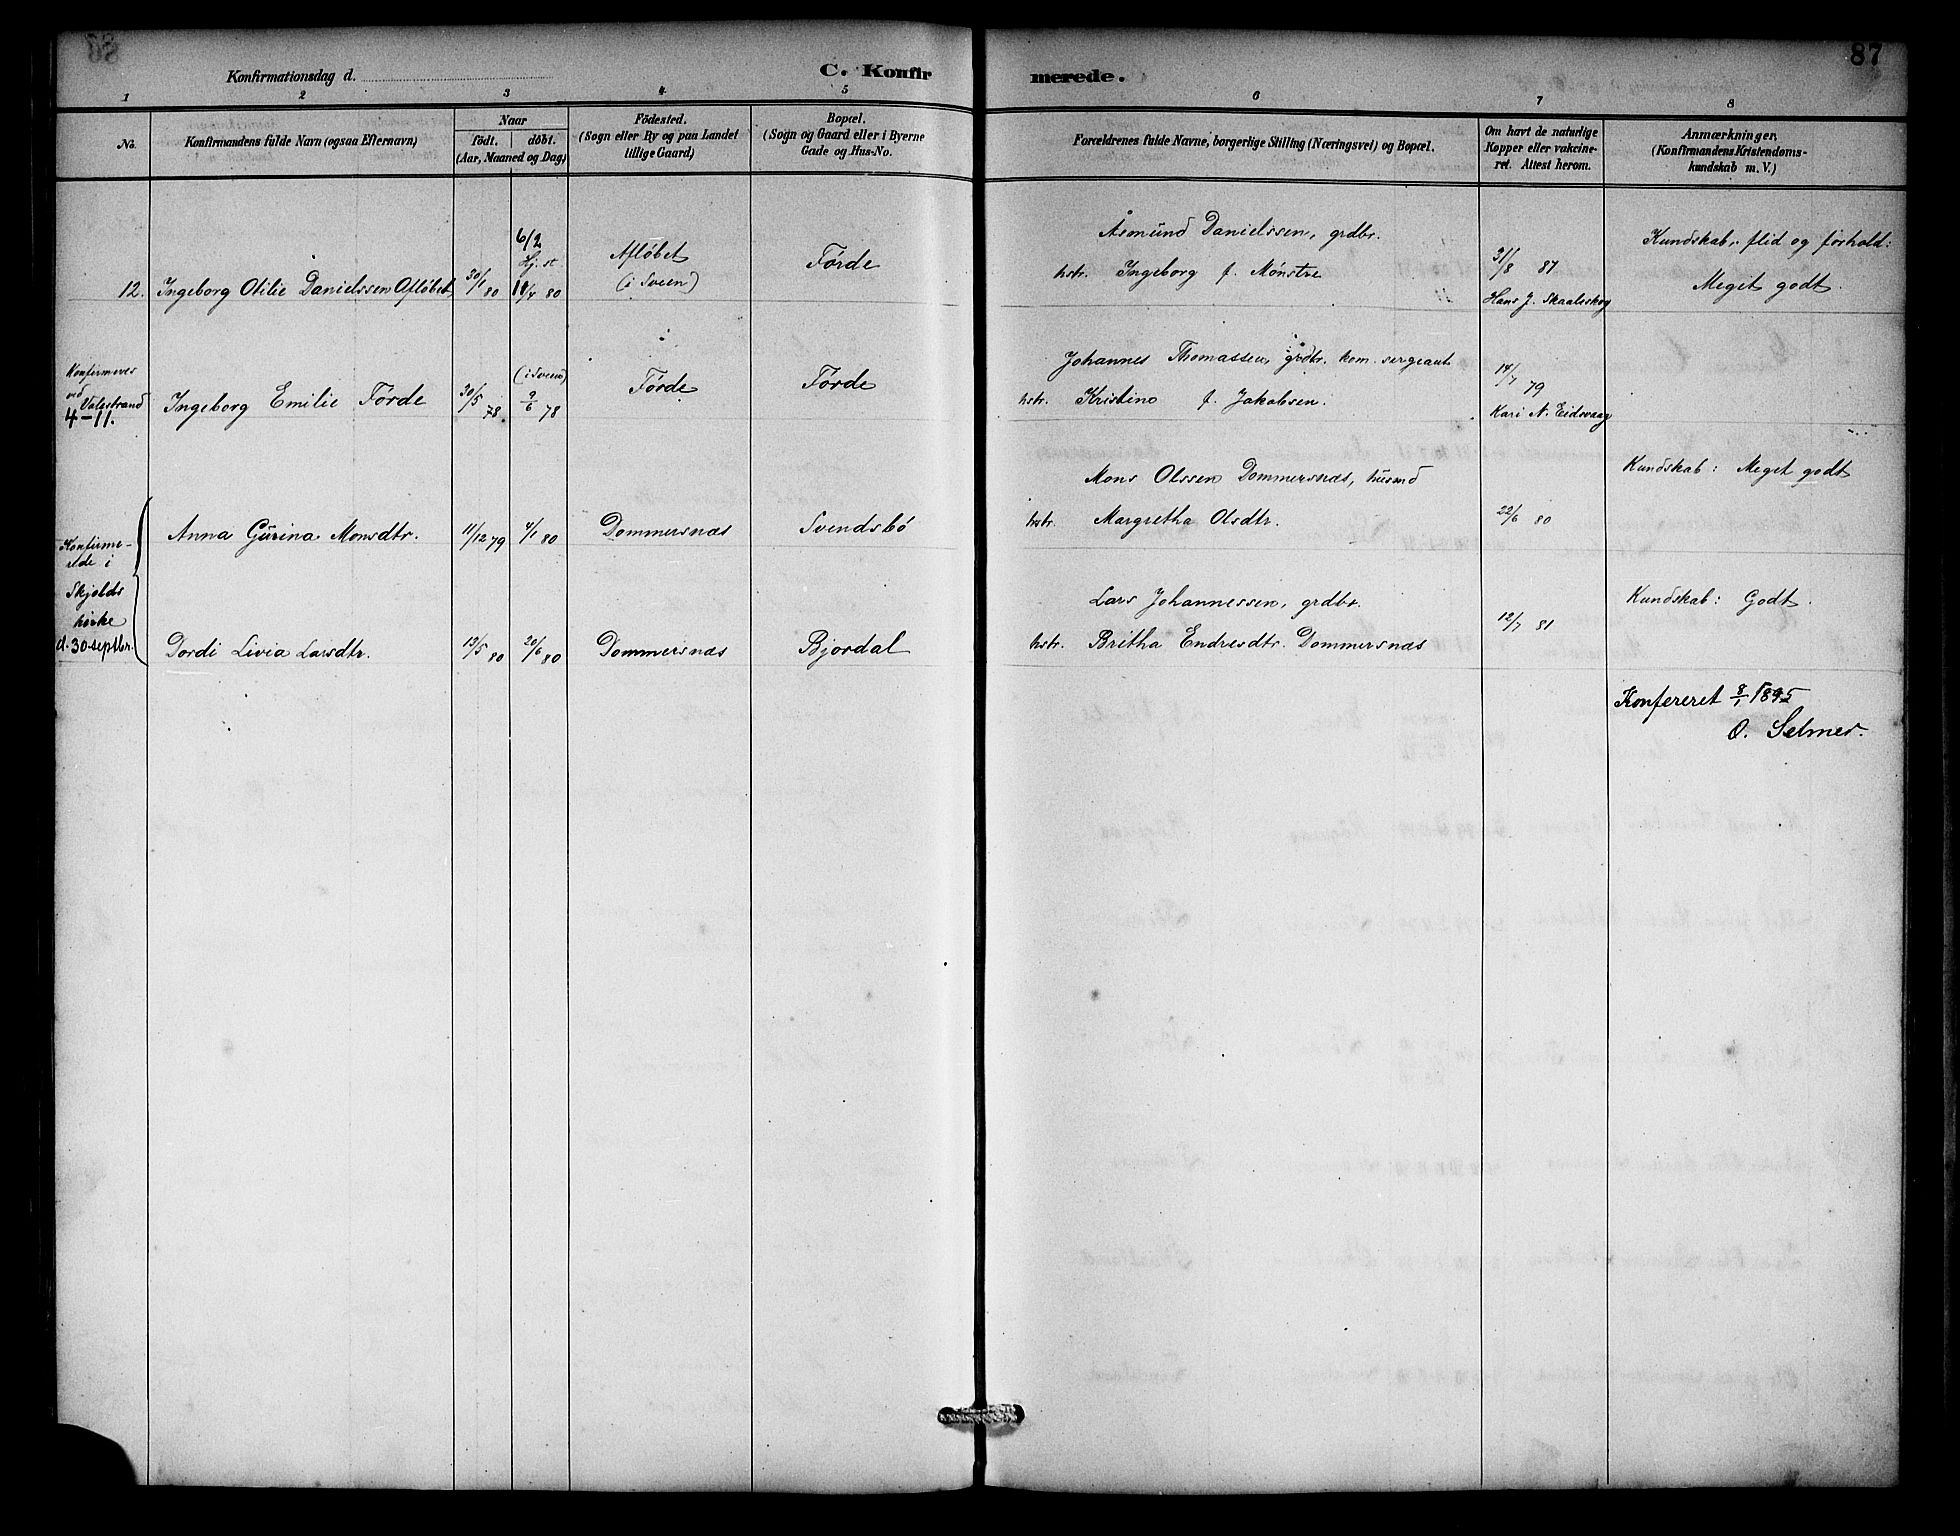 87
Konfirmationsdag d.
C. Konfirmerede.
1 2 3 4 5 6 7 8
No.
Konfirmandens fulde Navn (ogsaa Efternavn)
Naar
födt. döbt.
(Aar, Maaned og Dag)
Födested.
(Sogn eller By og paa Landet
tillige Gaard)
Bopæl.
(Sogn og Gaard eller i Byerne
Gade og Hus-No.
Forældrenes fulde Navne, borgerlige Stilling (Næringsvei) og Bopæl.
Om havt de naturlige
Kopper eller vakcine-
ret. Attest herom.
Anmærkninger.
(Konfirmandens Kristendoms-
kundskab m. V.)
12. Ingeborg Otilie Danielssen Afløbet 30/1 80 6/2 Hj. st 11/4 80 Afløbet (i Sveen) Førde
Åsmund Danielssen, grdbr.
hstr. Ingeborg f. Mønstre
31/8 87
Hans J. Skaaleskog
Kundskab, flid og forhold:
Meget godt.
Konfirmeres
ved
Valestrand
4-11.
Ingeborg Emilie Førde 30/5 78 (i Sveen) 9/6 78 Førde Førde
Johannes Thomassen, grdbr. kom. sergeant
hstr. Kristine f. Jakobsen.
14/7 79
Kari N. Eidsvaag
Konfirme-
rede i
Skjolds
kirke
d. 30 septbr.
Anna Gurina Monsdtr. 11/12 79 4/1 80 Dommersnæs Svendsbø
Mons Olssen Dommersnæs, husmd
hstr. Margretha Olsdtr.
22/6 80
Kundskab: Meget godt
Dordi Livia Larsdtr. 13/5 80 20/6 80 Dommersnæs Bjordal
Lars Johannessen, grdbr.
hstr. Britha Endresdtr. Dommersnæs
12/7 81
Kundskab: Godt.
Konfereret 8/1 1895
O. Selmer.